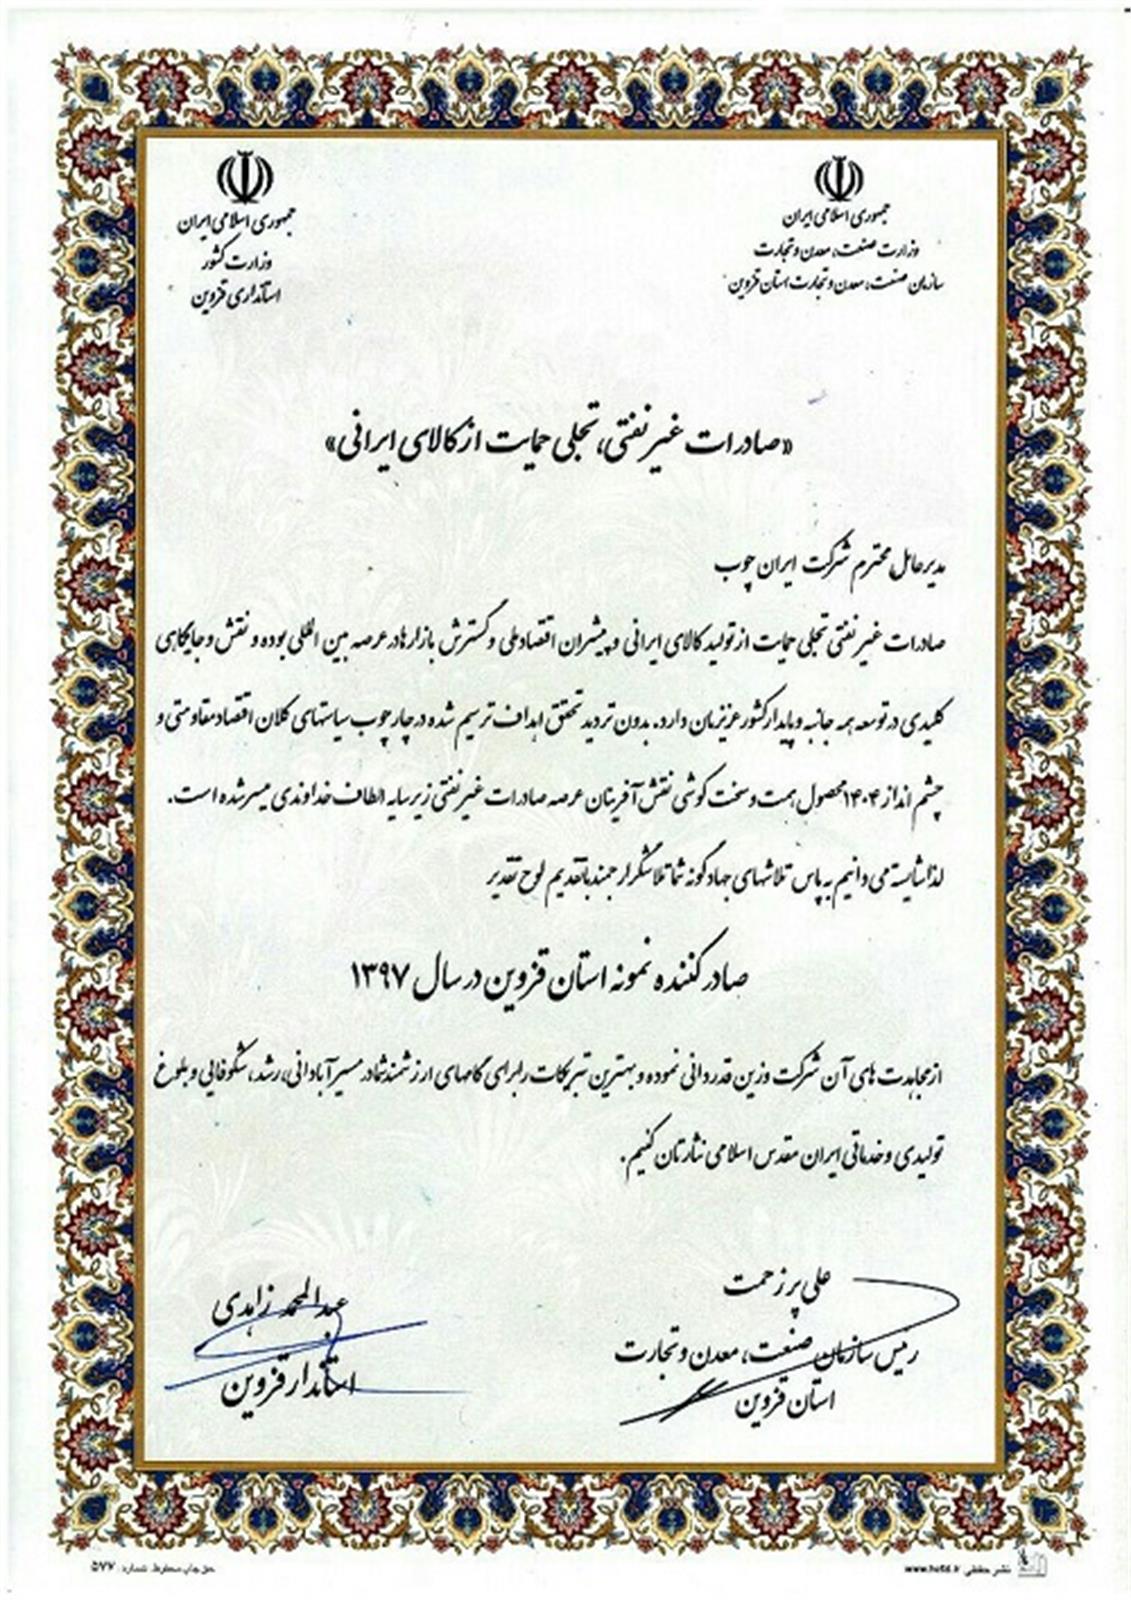 جمهوری اسلامی ایران
وزارت صنعت، معدن و تجارت
سازمان صنعت، معدن و تجارت استان قزوین
جمهوری اسلامی ایران
وزارت کشور
استانداری قزوین
«صادرات غیر نفتی، تجلی حمایت از کالای ایرانی»
مدیر عامل محترم شرکت ایران چوب
صادرات غیر نفتی تجلی حمایت از تولید کالای ایرانی و پیشران اقتصاد ملی و گسترش بازارها در عرصه بین المللی بوده و نقش و جایگاهی
کلیدی در توسعه همه جانبه و پایدار کشور عزیزمان دارد. بدون تردید تحقق اهداف ترسیم شده در چارچوب سیاستهای کلان اقتصاد مقاومتی و
چشم انداز ۱۴۰۴ محصول همت و سخت کوشی نقش آفرینان عرصه صادرات غیر نفتی زیر سایه الطاف خداوندی میسر شده است.
لذا شایسته می دانیم به پاس تلاشهای جهادگونه شما تلاشگر ارجمند با تقدیم لوح تقدیر
صادر کننده نمونه استان قزوین در سال ۱۳۹۷
از مجاهدت های آن شرکت وزین قدردانی نموده و بهترین تبریکات را برای گامهای ارزشمند شما در مسیر آبادانی، رشد، شکوفایی و بلوغ
تولیدی و خدماتی ایران مقدس اسلامی نثارتان کنیم.
علی پرزحمت
رئیس سازمان صنعت، معدن و تجارت
استان قزوین
عبدالمحمد زاهدی
استاندار قزوین
نشر حفظی
حق چاپ محفوظ. شماره: ۵۷۷